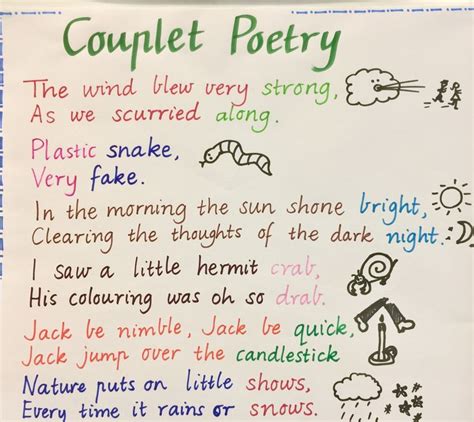 Couplet Poetry
The wind blew very strong,
As we scurried along.
Plastic snake,
Very fake.
In the morning the sun shone bright,
Clearing the thoughts of the dark night.
I saw a little hermit crab,
His colouring was oh so drab.
Jack be nimble, Jack be quick,
Jack jump over the candlestick
Nature puts on little shows,
Every time it rains or snows.